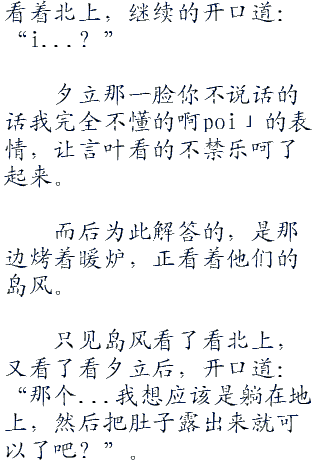 看着北上，继续的开口道：
“i...？”
夕立那一脸你不说话的
话我完全不懂的啊poi」的表
情，让言叶看的不禁乐呵了
起来。
而后为此解答的，是那
边烤着暖炉，正看着他们的
岛风。
只见岛风看了看北上，
又看了看夕立后，开口道：
“那个...我想应该是躺在地
上，然后把肚子露出来就可
以了吧？”。